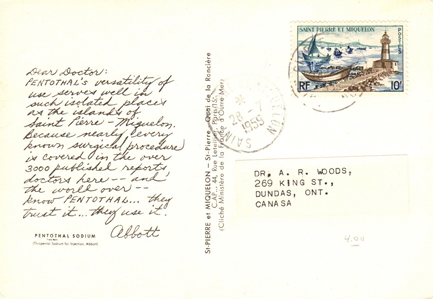 Dear Doctor:
PENTOTHAL's versatility of
use serves well in
such isolated places
as the islands of
Saint Pierre - Miquelon.
Because nearly every
known surgical procedure
is covered in the over
3000 published reports
doctors here -- and
the world over --
know PENTOTHAL... they
trust it... they use it.
Abbott
PENTOTHAL SODIUM
(Thiopental Sodium for Injection, Abbott)
ST-PIERRE et MIQUELON - St-Pierre - Quai de la Roncière
C.A.P. - 44, Rue Letellier, Paris
(Cliché Ministère de la France d'Outre Mer)
SAINT PIERRE ET MIQUELON
POSTES
RF
10F
28-7
1959
DR. A. R. WOODS,
269 KING ST.,
DUNDAS, ONT.
CANADA
4.00